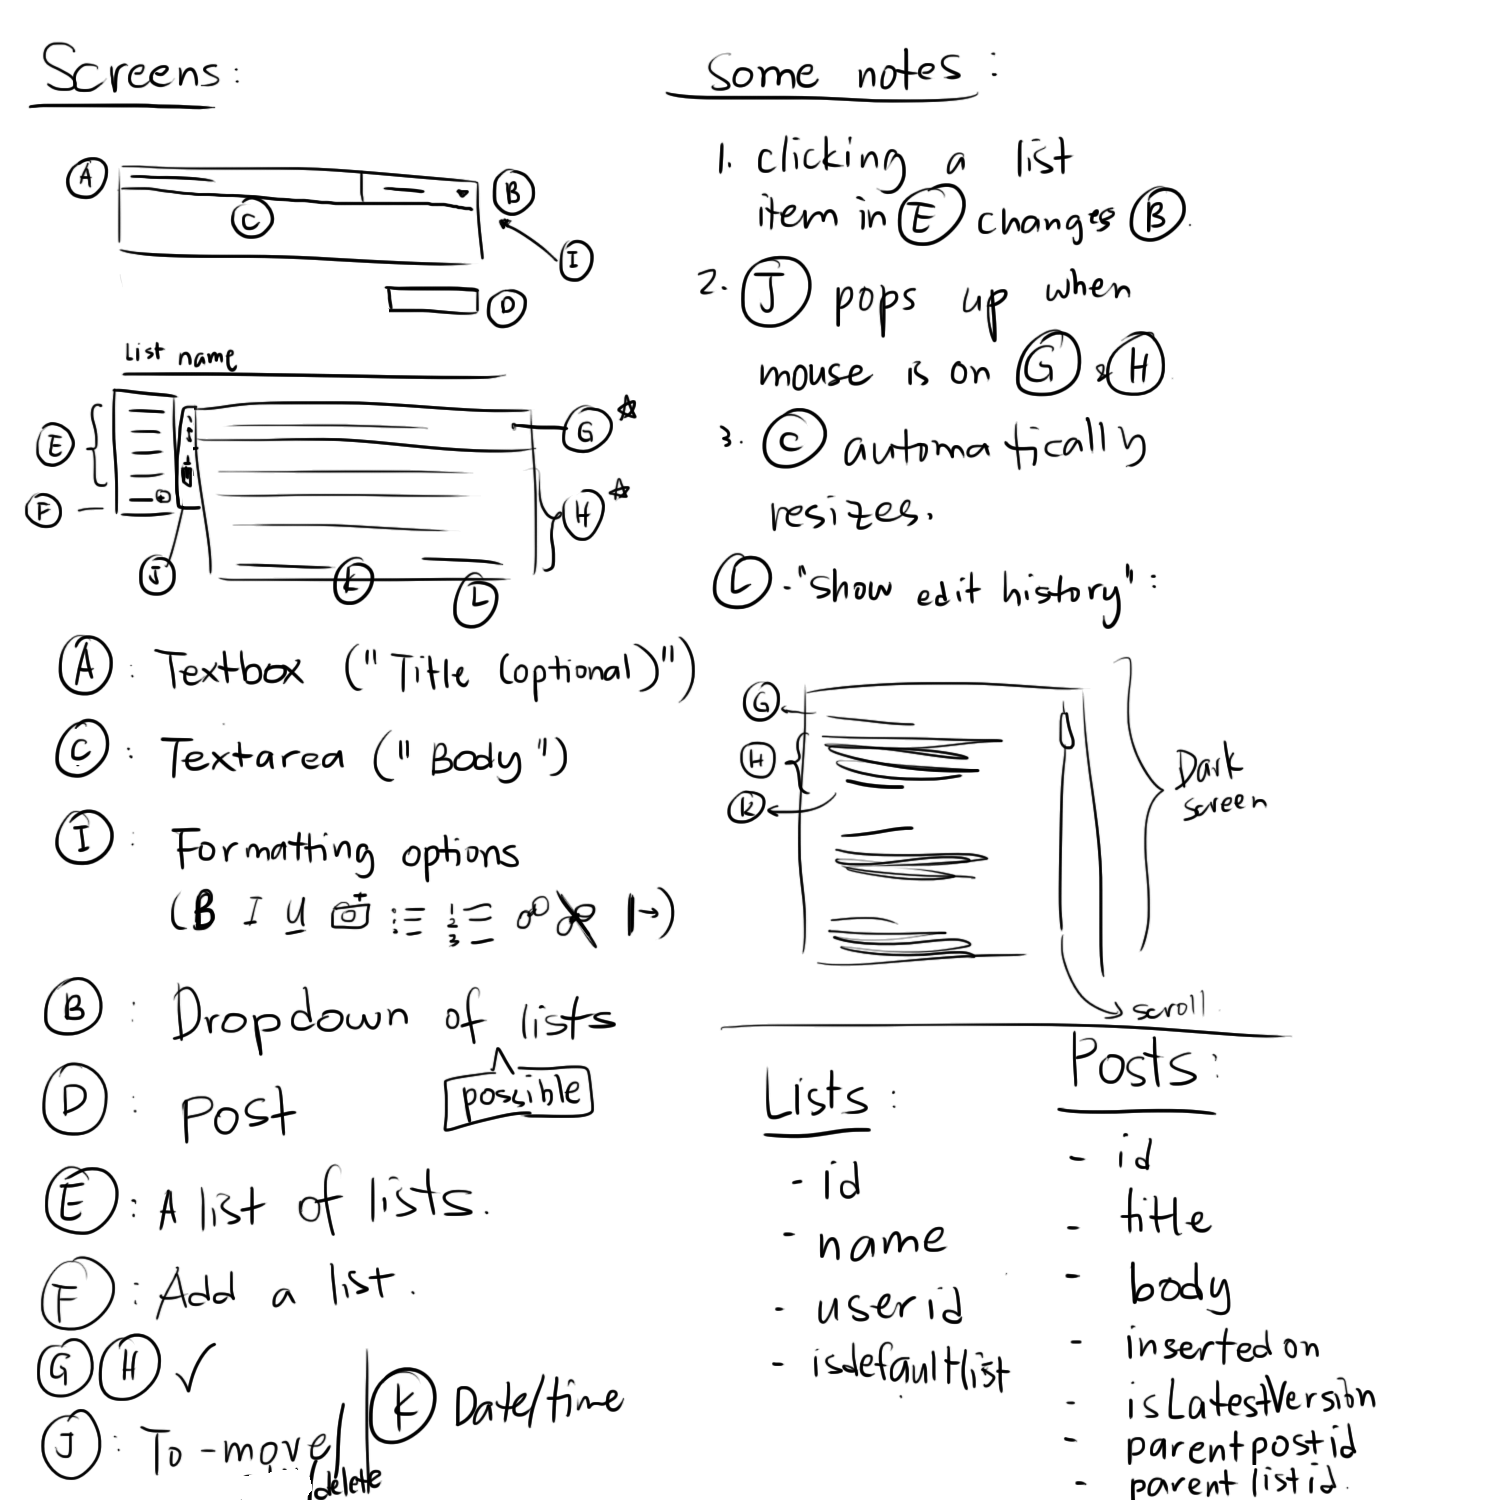 Screens:
A
B
C
I
D
List name
E
G
F
H
J
K
L
A : Textbox ("Title (optional)")
C : Textarea ("Body")
I : Formatting options
(B I U 1 2 3)
B : Dropdown of lists
possible
D : Post
E : A list of lists.
F : Add a list.
G H ✓
J : To-move/
/delete
K Date/time
Some notes:
1. clicking a list
item in E changes B.
2. J pops up when
mouse is on G & H
3. C automatically
resizes.
L - "show edit history":
G
H
K
Dark
screen
scroll
Lists:
- id
- name
- userid
- isdefaultlist
Posts:
- id
- title
- body
- insertedon
- isLatestVersion
- parentpostid
- parentlistid.